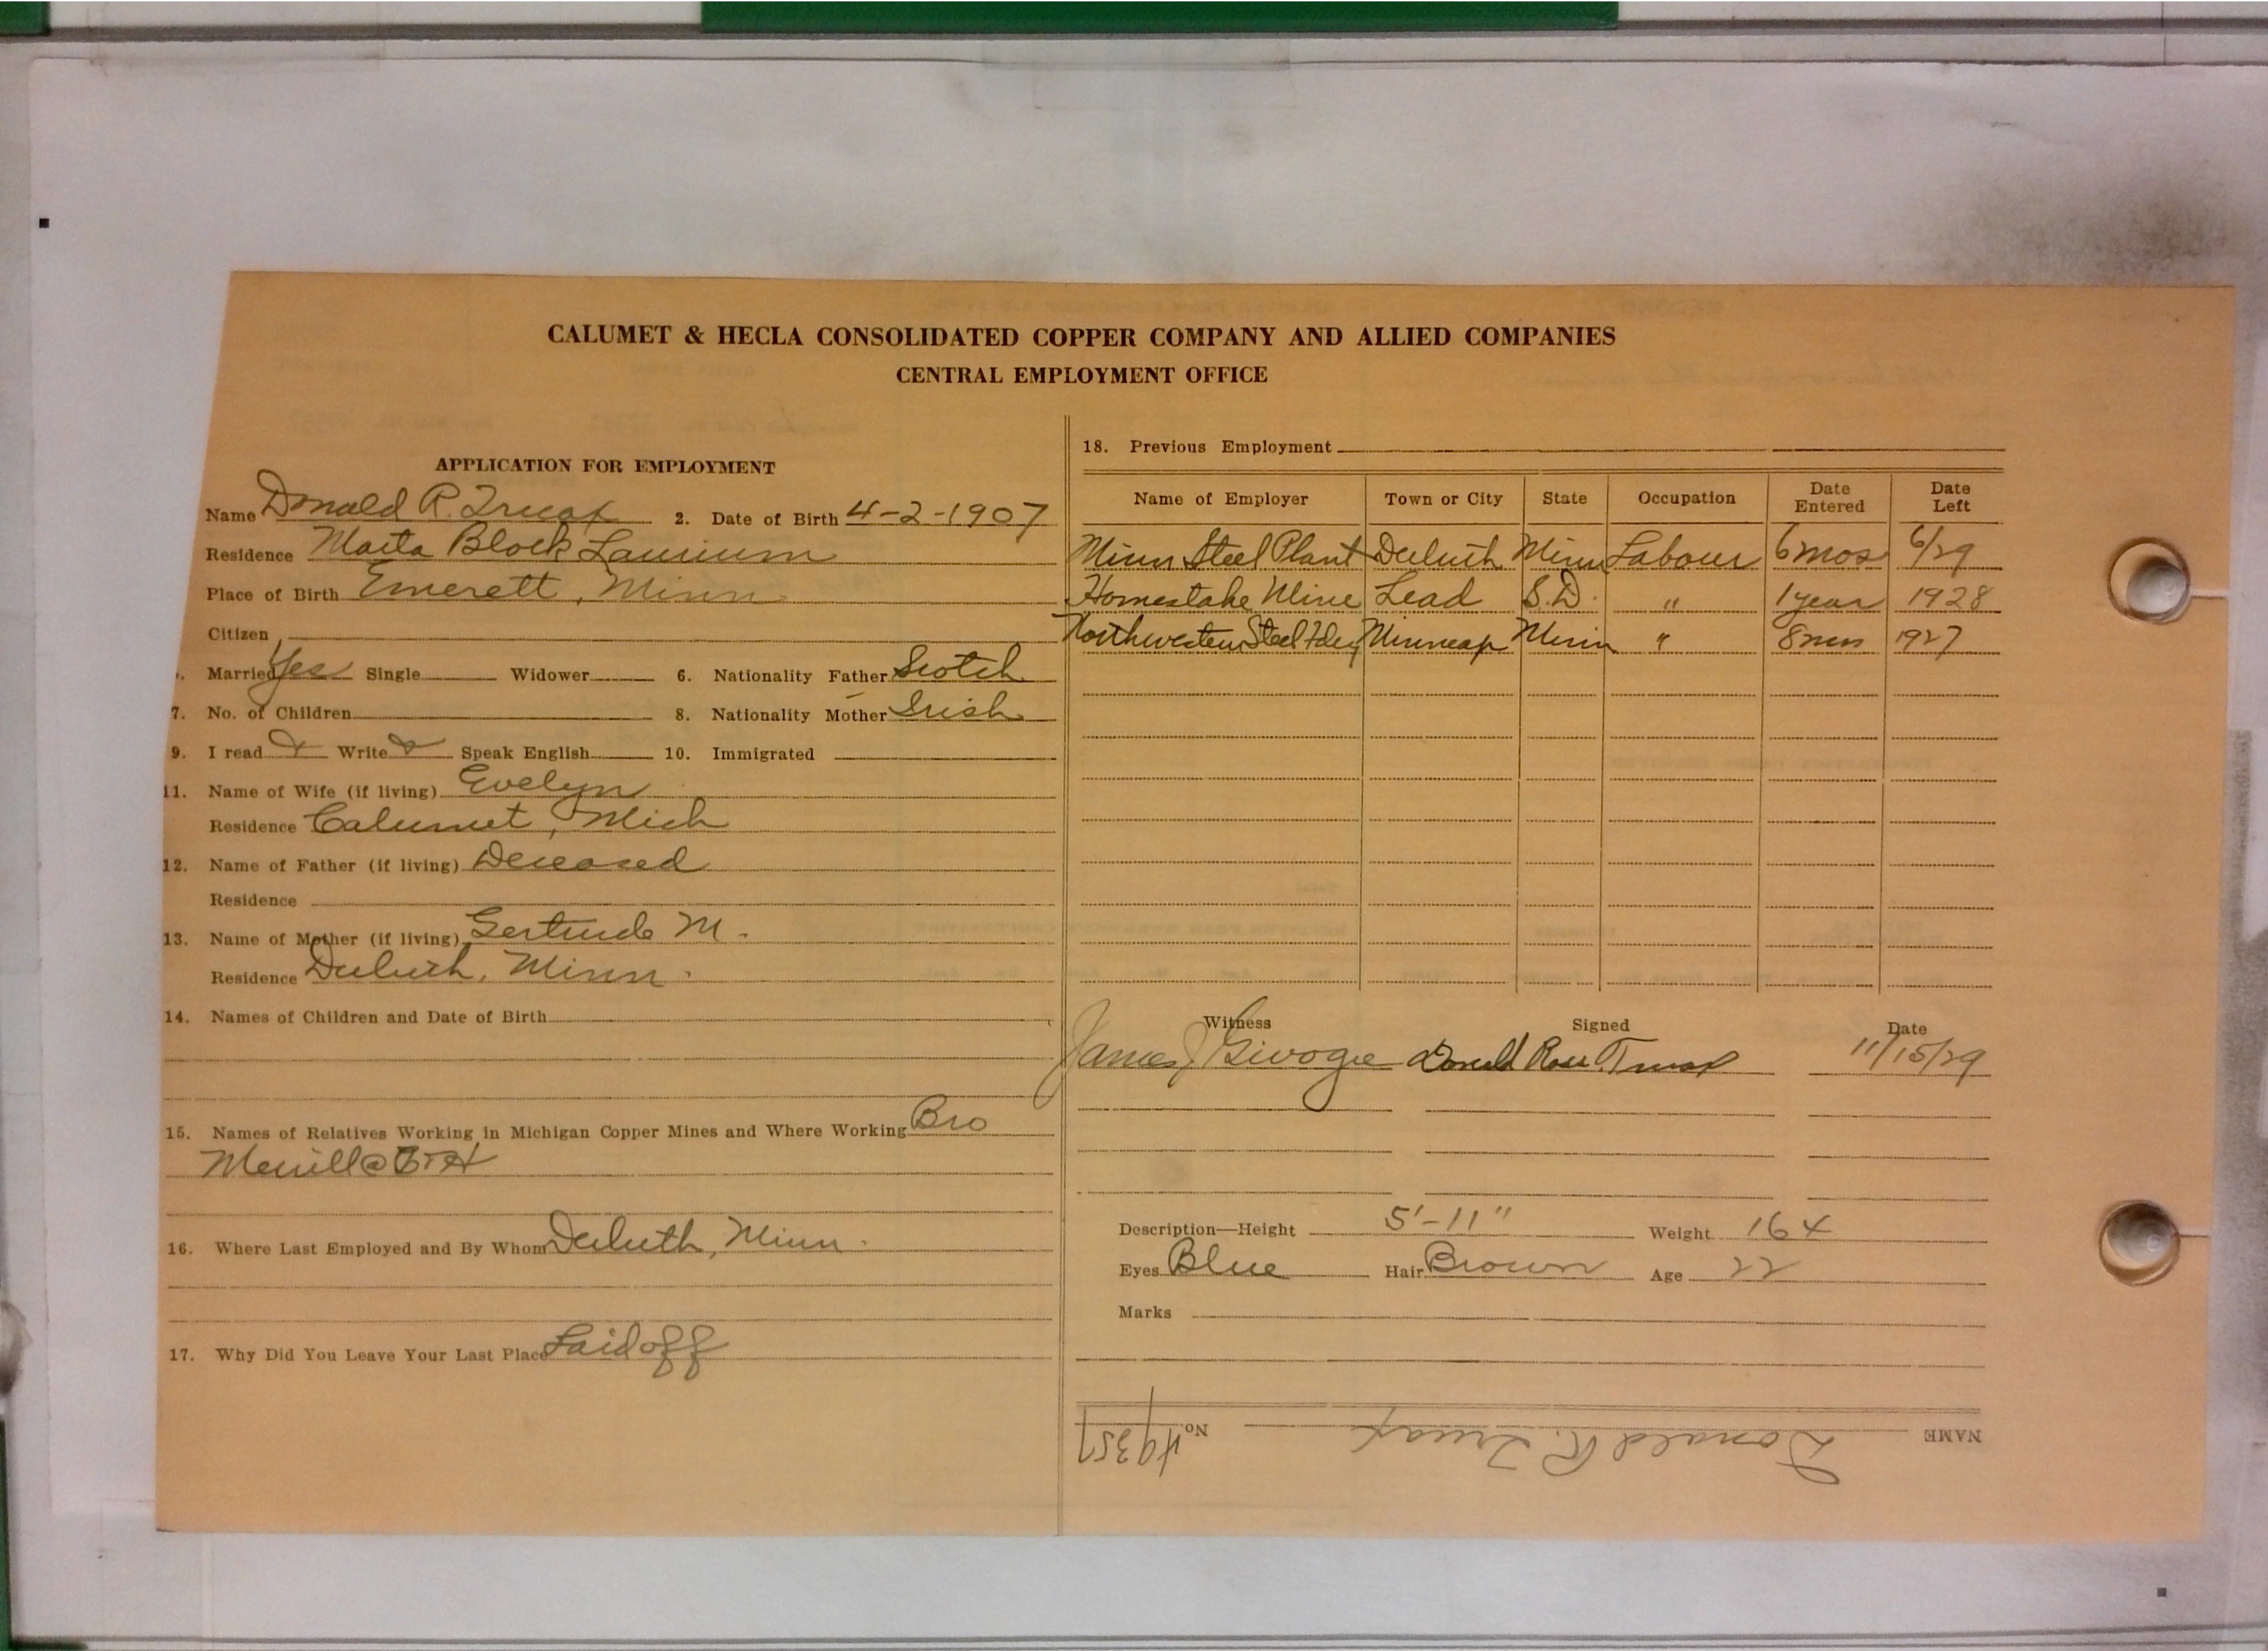 CALUMET & HECLA CONSOLIDATED COPPER COMPANY AND ALLIED COMPANIES
CENTRAL EMPLOYMENT OFFICE
APPLICATION FOR EMPLOYMENT
Name Donald R. Truax 2. Date of Birth 4-2-1907
Residence Maita Block Laurium
Place of Birth Emerett, Minn.
Citizen
Married Yes Single Widower 6. Nationality Father Scotch
7. No. of Children 8. Nationality Mother Irish
9. I read Write Speak English 10. Immigrated
11. Name of Wife (if living) Evelyn
Residence Calumet, Mich
12. Name of Father (if living) Deceased
Residence
13. Name of Mother (if living) Gertrude M.
Residence Duluth, Minn.
14. Names of Children and Date of Birth
15. Names of Relatives Working in Michigan Copper Mines and Where Working Bro
Merrill @
16. Where Last Employed and By Whom Duluth, Minn.
17. Why Did You Leave Your Last Place Laid off
18. Previous Employment
Name of Employer Town or City State Occupation Date Entered Date Left
Minn Steel Plant Duluth Minn Labour 6 mos 6/29
Homestake Mine Lead S.D. " 1 year 1928
Northwestern Steel Fdry Minneap Minn " 8 mos 1927
Witness Signed Date
James J Donald Ross Truax 11/15/29
Description—Height 5'-11" Weight 164
Eyes Blue Hair Brown Age 22
Marks
NAME Donald R. Truax No. 49357